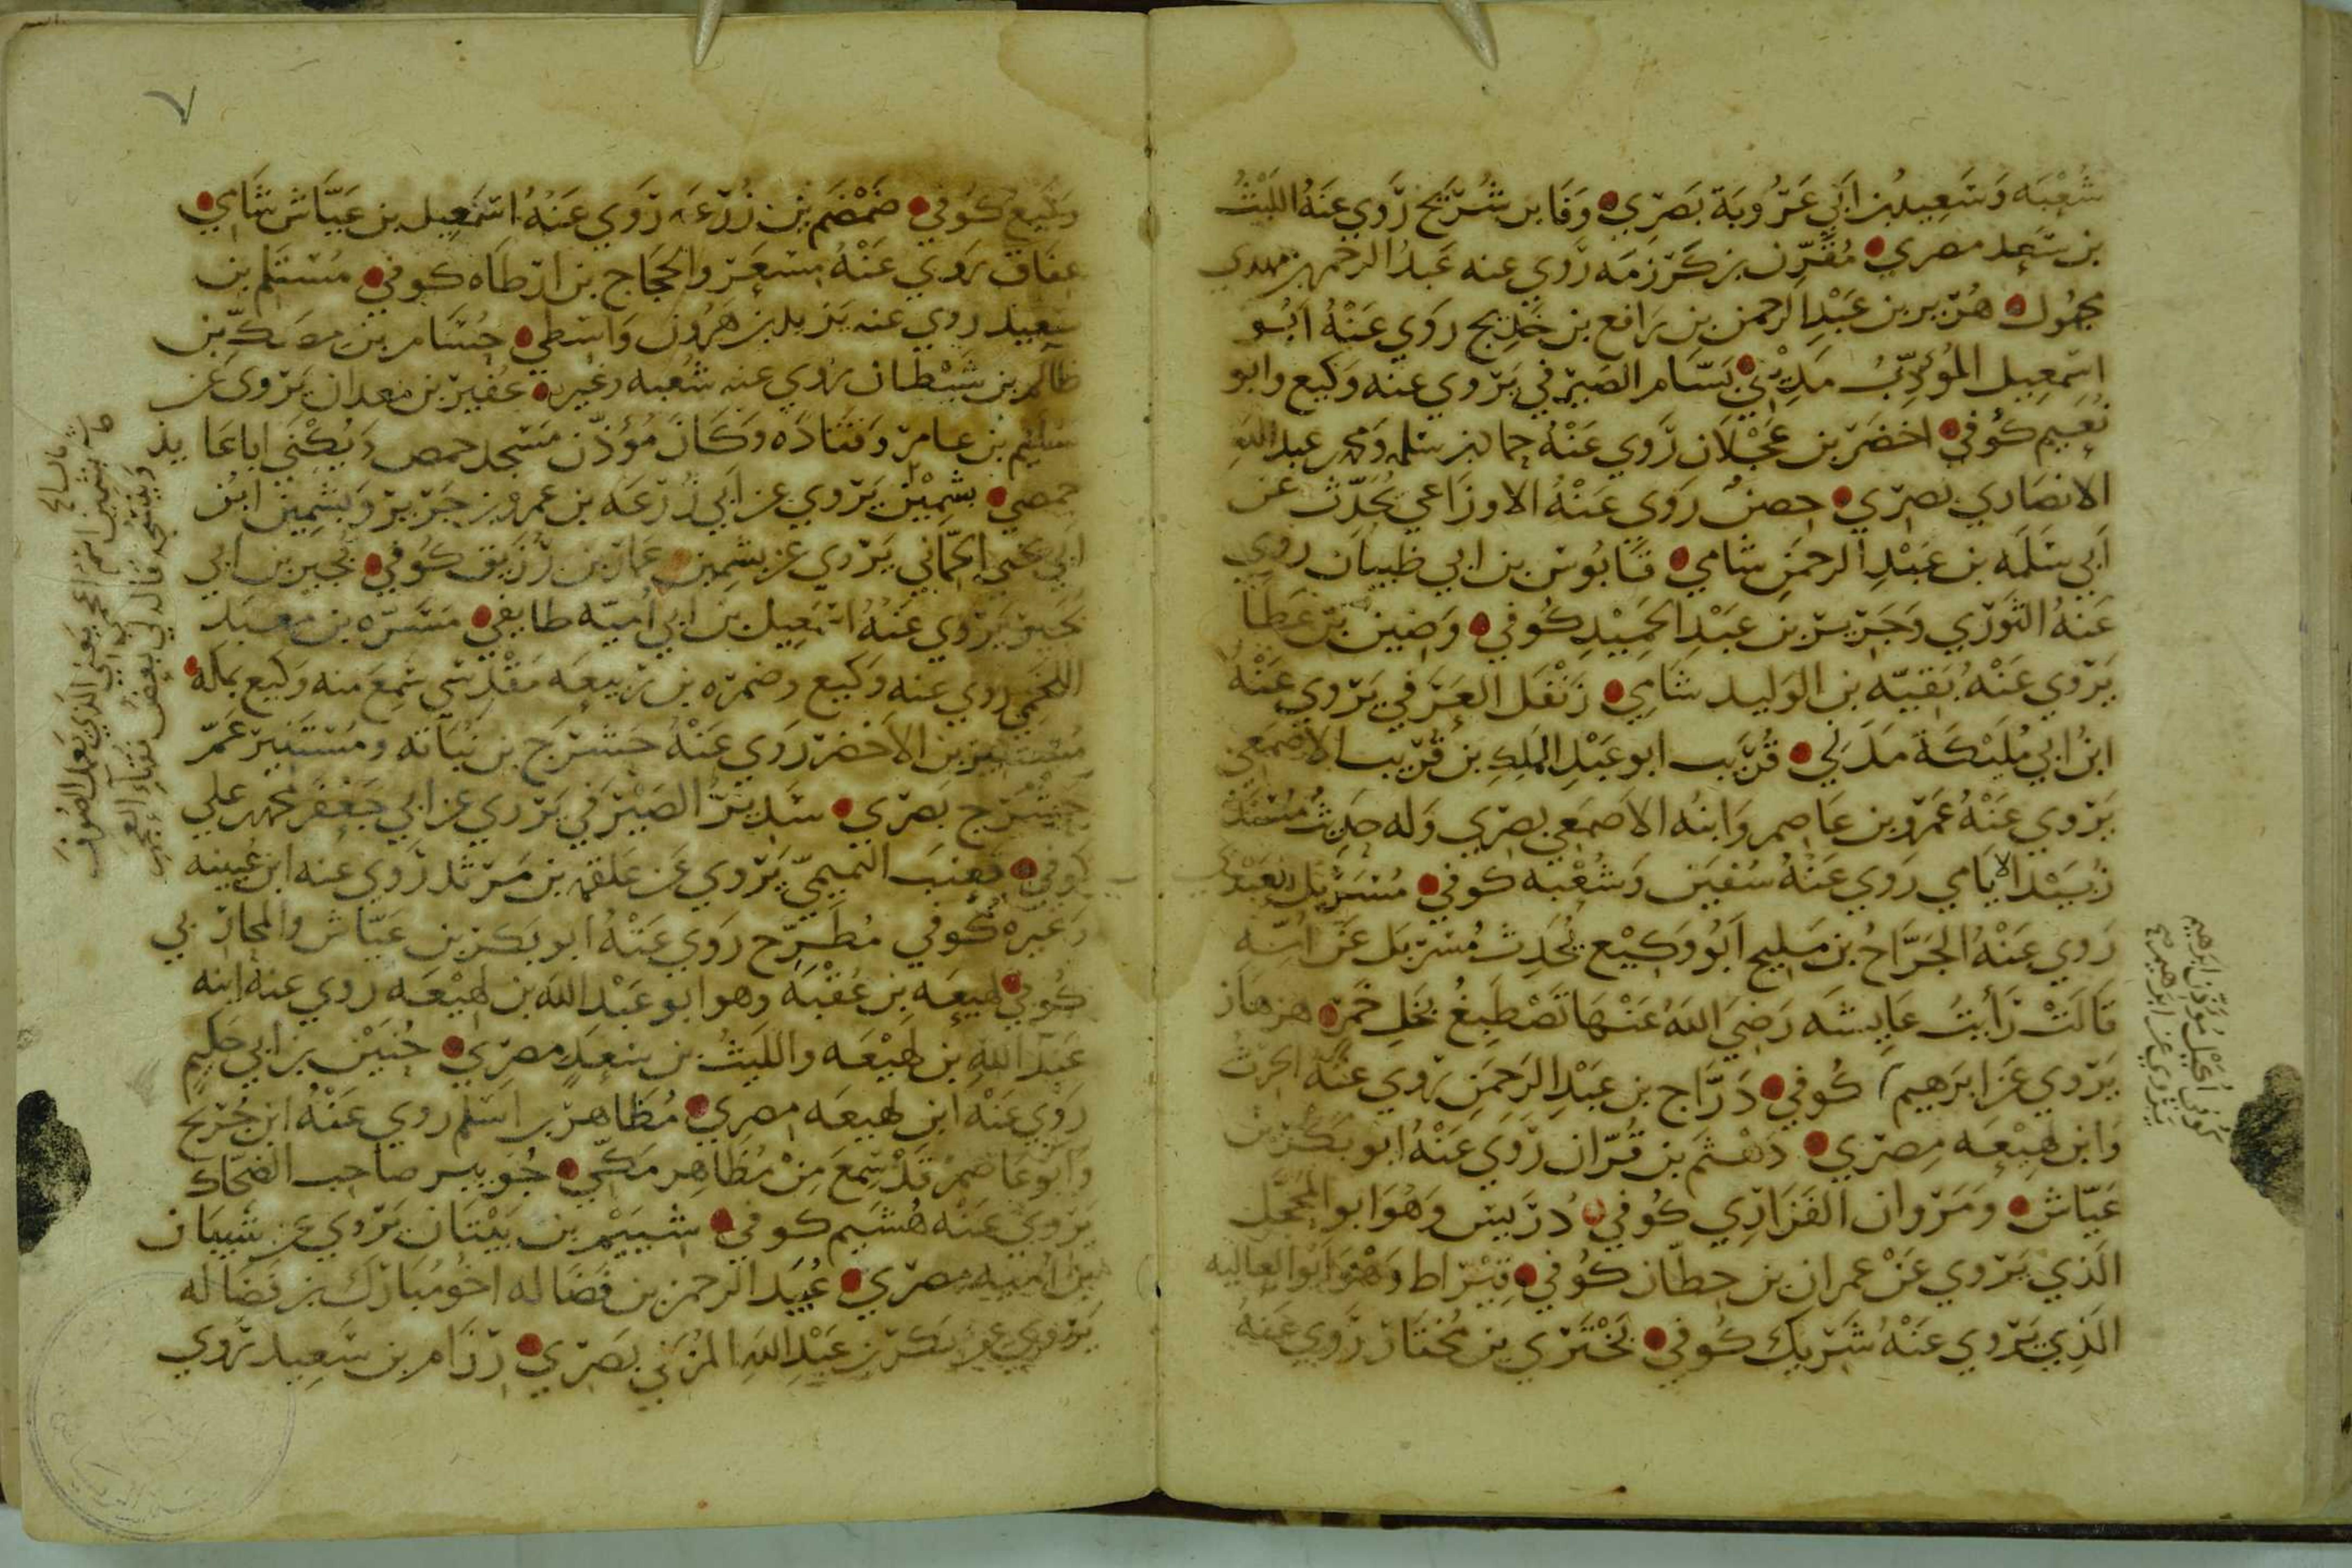 شُعْبَه وَسَعِيدُ بن ابي عَرُوبَة بَصْرِي وَفَا بن شُرَيح رَوي عَنهُ اللَيْثُ
بن سَعِد مصري مُقَرِّن بن كَرْزمَه رَوي عنه عَبدُ الرحمن بن مهدي
مجهُول هُرَير بن عَبْدِ الرحمن بن رَافع بن خَدِيج روَي عَنْهُ ابُو
اسمعِيل المؤدِّبُ مَدِيني بَسَّام الصَيرَفي يَرْوي عنه وَكيع وابو
نُعَيم كُوفي اخضَر بن عَجْلَان رَوي عَنْهُ حماد بن سلمه ومحمد بن عبد الله
الانصَاري بَصرِي حِصنٌ رَوَي عَنْهُ الاوزَاعي يُحَدّث عَن
اَبي سَلَمَه بن عَبْدِ الرحمَنِ شامي قَابُوس بن ابي ظبيَان روي
عَنهُ الثَوري وَجَرِير بن عَبْدِ الحَمِيْدِ كُوفي وَضِين بن عَطَا
يَرْوي عَنْهُ بَقيّه بن الوَليد شَامِي زَنْفَل العَرَفي يَرْوي عَنْهُ
ابنُ ابي مُلَيْكَة مَدَني قُرَيب ابو عَبْدِ المَلِكِ بن قُرَيب الاصمَعي
يَرْوي عَنْهُ عَمْرو بن عَاصِم وَابنُه الاَصمَعي بصرِي وَله حَدِيثٌ مُسْنَد
زُبَيْد الايَامي رَوي عَنْهُ سُفيَن وَشُعْبَه كوفي مُسَرْبَل العَبْدي
رَوي عَنْهُ الجَرَّاحُ بن مَلِيح اَبُو وَكِيْع يُحَدِث مُسَرْبَل عَن اُمّه
قَالَتْ رَأيتُ عَايشَه رَضيَ اللهُ عَنْهَا تَصْطَبِغُ بخَلِ خَمر هزهَاز
يَرْوي عَن ابرَهيم كُوفي دَرَّاج بن عَبْدِ الرَحمَنِ يَروي عَنْهُ الحرثُ
وَابن لَهِيْعَه مِصْرِي دَهثَم بن قُرّان رَوَي عَنْهُ ابو بَكر بن
عَيّاش وَمَرْوان الفَزَارِي كُوفي دُرَيس وَهُوَ ابو المُحَجّل
الَذي يَرْوي عَنْ عمرَان بن حِطّان كُوفي قِيْرَاط وَهُوَ ابُو العَاليه
الَذِي يَرْوي عَنْهُ شَرِيك كُوفي بَخْتَري بن مُختَار رَوي عَنهُ
كوفي اُكَيْل مُؤذّن ابرهيم
يَرْوي عن ابرهيم
٧
وَكيع كُوفي ضَمْضَم بن زُرعَه رَوَي عَنْهُ اسمَعِيل بن عَيَّاش شَامِي
عفَاق يَروي عَنْهُ مِسْعَر والحَجَاج بن ارطَاه كوفي مُستَلم بن
سَعِيد روي عنه يَزيد بن هَرُون وَاسطي حُسَام بن مِصَكّ بن
ظالم بن شَيْطان يَروي عنه شُعبه وغيره عُفَير بن مَعدان يَرْوي عَن
سُلَيم بن عامر وَقتَادَه وَكَانَ مُؤذّن مَسجد حمص وَيُكْنَي ابا عَايذ
حمصي بشِمِيْن يَرْوي عَن اَبي زُرْعَه بن عمرو بن جَرير وَبَشِمِين ابن
ابي يحيي الحِمَّاني يَرْوي عَن بشمِين عَمار بن رُزَيق كُوفي بُجَير بن ابي
بُجَير يَرْوي عَنْهُ اسمَعِيل بن ابي اُميّه طايفي مَسَرّه بن معبَد
اللخمي روي عنه وَكيع وضمره بن رَبيعَه مَقْدسي سَمعَ منه وَكيع بمكه
بن الاخضر رَوَي عَنْهُ حَشْرَج بن نُبَاتَه وَمُستَنير عَمّ
حَشْرَج بَصري سَدِيرٌ الصَيْرَفي يَرْوي عن ابي جَعْفَر محمد بن علي
كوفي قَعنَب التميميّ يَرْوي عَن عَلقمه بن مَرثد رَوي عنه ابن عُيينه
وغيره كُوفي مُطَرّح رَوَي عَنْهُ ابو بكر بن عيّاش والمحاربي
كُوفي لهيعَه بن عُقْبَه وهو ابو عَبْد الله بن لهيْعَه روي عنه ابنه
عَبْدُ الله بن لهِيْعَه والليَثُ بن سَعِدٍ مصري حُنَيْن بن ابي حَكيمٍ
رَوَي عَنْه ابن لهيعَه مصري مُظَاهر بن اسلم روي عَنْهُ ابن جُرَيج
وَابُو عَاصِم قَدْ سَمعَ مِنْ مُظَاهِر مَكّي جُوَيبر صَاحب الضحّاك
يَرْوي عَنْه هُشَيم كوفي شُيَيْم بن بَيْتَان يَرْوي عَن شَيبَان
بن اميه مصري عُبَيد الرحمن بن فَضَاله اخُو مُبَارَك بن فَضَاله
يَرْوي عن بَكر بن عَبْدِ اللهِ المُزَني بَصري رزَام بن سَعِيد يَرْوي